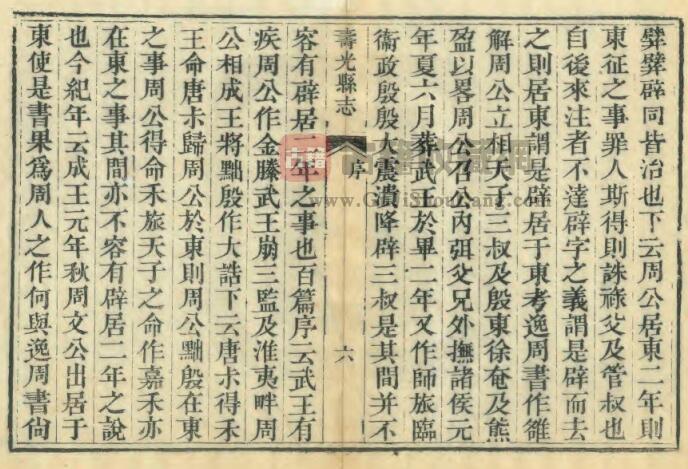 辟同皆治也下云周公居東二年則
東征之事罪人斯得則誅祿父及管叔也
自後來注者不達辟字之義謂是辟而去
之則居東謂是辟居于東考逸周書作雒
解周公立相天子三叔及殷東徐奄及熊
盈以畧周公召公內弭父兄外撫諸侯元
年夏六月葬武王於畢二年又作師旅臨
衞政殷殷大震潰降辟三叔是其間並不
壽光縣志
序
六
容有辟居二年之事也百篇序云武王有
疾周公作金縢武王崩三監及淮夷畔周
公相成王將黜殷作大誥下云唐尗得禾
王命唐尗歸周公於東則周公黜殷在東
之事周公得命禾旅天子之命作嘉禾亦
在東之事其間亦不容有辟居二年之說
也今紀年云成王元年秋周文公出居于
東使是書果爲周人之作何與逸周書尙